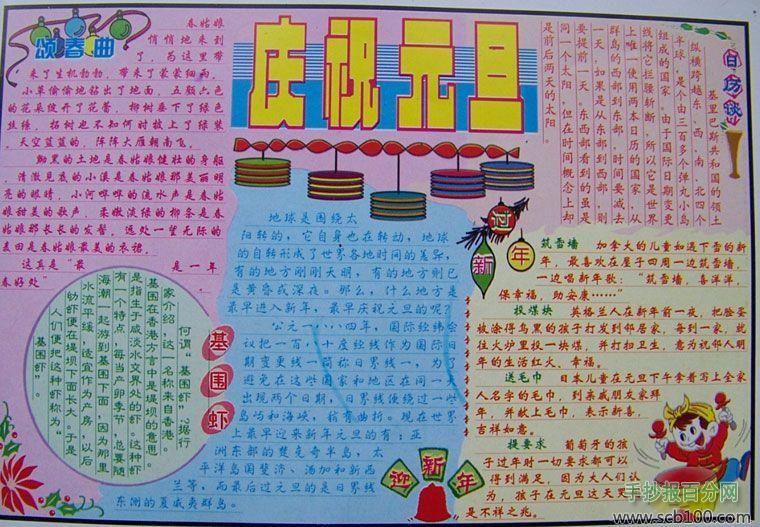 颂春曲
春姑娘
悄悄地来到
了，为这里带
来了生机勃勃，带来了蒙蒙细雨，
小草偷偷地钻出了地面，五颜六色
的花朵绽开了花蕾，柳树垂下了绿色
丝绦，柘树也不知何时披上了绿装，
天空蓝蓝的，阵阵大雁朝南飞，
黝黑的土地是春姑娘健壮的身躯，
清澈见底的小溪是春姑娘那美丽明
亮的眼睛，小河哗哗的流水声是春姑
娘甜美的歌声，柔嫩淡绿的柳条是春姑
娘那长长的发髻，远处一望无际的
麦田是春姑娘最美的衣裙。
这真是“最是一年
春好处”
庆祝元旦
日历谈
基里巴斯共和国的领土
纵横跨越东、西、南、北四个
半球，是个由三百多个弹丸小岛
组成的国家，由于国际日期变更
线将它拦腰斩断，所以它是世界
上唯一使用两本日历的国家，从
群岛的西部到东部，时间要减去
一天，如果是从东部到西部，则
要提前一天。东西都看到的虽是
同一个太阳，但在时间概念上却
是前后两天的太阳。
地球是围绕太
阳转的，它自身也在转动，地球
的自转形成了世界各地时间的差异，
有的地方刚刚天明，有的地方则已
是黄昏或深夜。那么，什么地方是
最早进入新年，最早庆祝元旦的呢？
公元一八八四年，国际经纬会
议把一百八十度经线作为国际日
期变更线—简称日界线—，为了
避免在这些国家和地区在同一天
出现两个日期，日界线便绕过一些
岛屿和海峡，稍有曲折。现在世界
上最早迎来新年元旦的有：亚
洲东部的楚克奇半岛，太
平洋岛国斐济、汤加和新西
兰等，而最后过元旦的是日界线
东测的夏威夷群岛。
过新年
筑雪墙 加拿大的儿童如遇下雪的新
年，最喜欢在屋子四周一边筑雪墙，
一边唱新年歌：“筑雪墙，喜洋洋，
保幸福，助安康……”
投煤块 英格兰人在新年前一夜，把脸蛋
被涂得乌黑的孩子打发到邻居家，每到一家，就
往火炉里投一块煤，并打扫卫生，意为祝邻人明
年的生活红火、幸福。
送毛巾 日本儿童在元旦下午拿着写上全家
人名字的毛巾，到亲戚朋友家拜
年，并献上毛巾，表示新喜，
吉祥如意。
提要求 葡萄牙的孩
子过年时一切要求都可以
得到满足，因为大人们认
为，孩子在元旦这天哭
是不祥之兆。
基围虾
何谓“基围虾”？据行
家介绍，这一名称来自香港。
基围在香港方言中是堤坝的意思，
是指生于咸淡水交界处的虾。这种虾
有一个特点，每当产卵季节，总要随
海潮一起游到基围下面，因为那里
水流平缓，适宜作为产房，以后
幼虾便在堤坝下面长大。于是
人们便把这种虾称为“
基围虾”。
迎新年
手抄报百分网
www.scb100.com